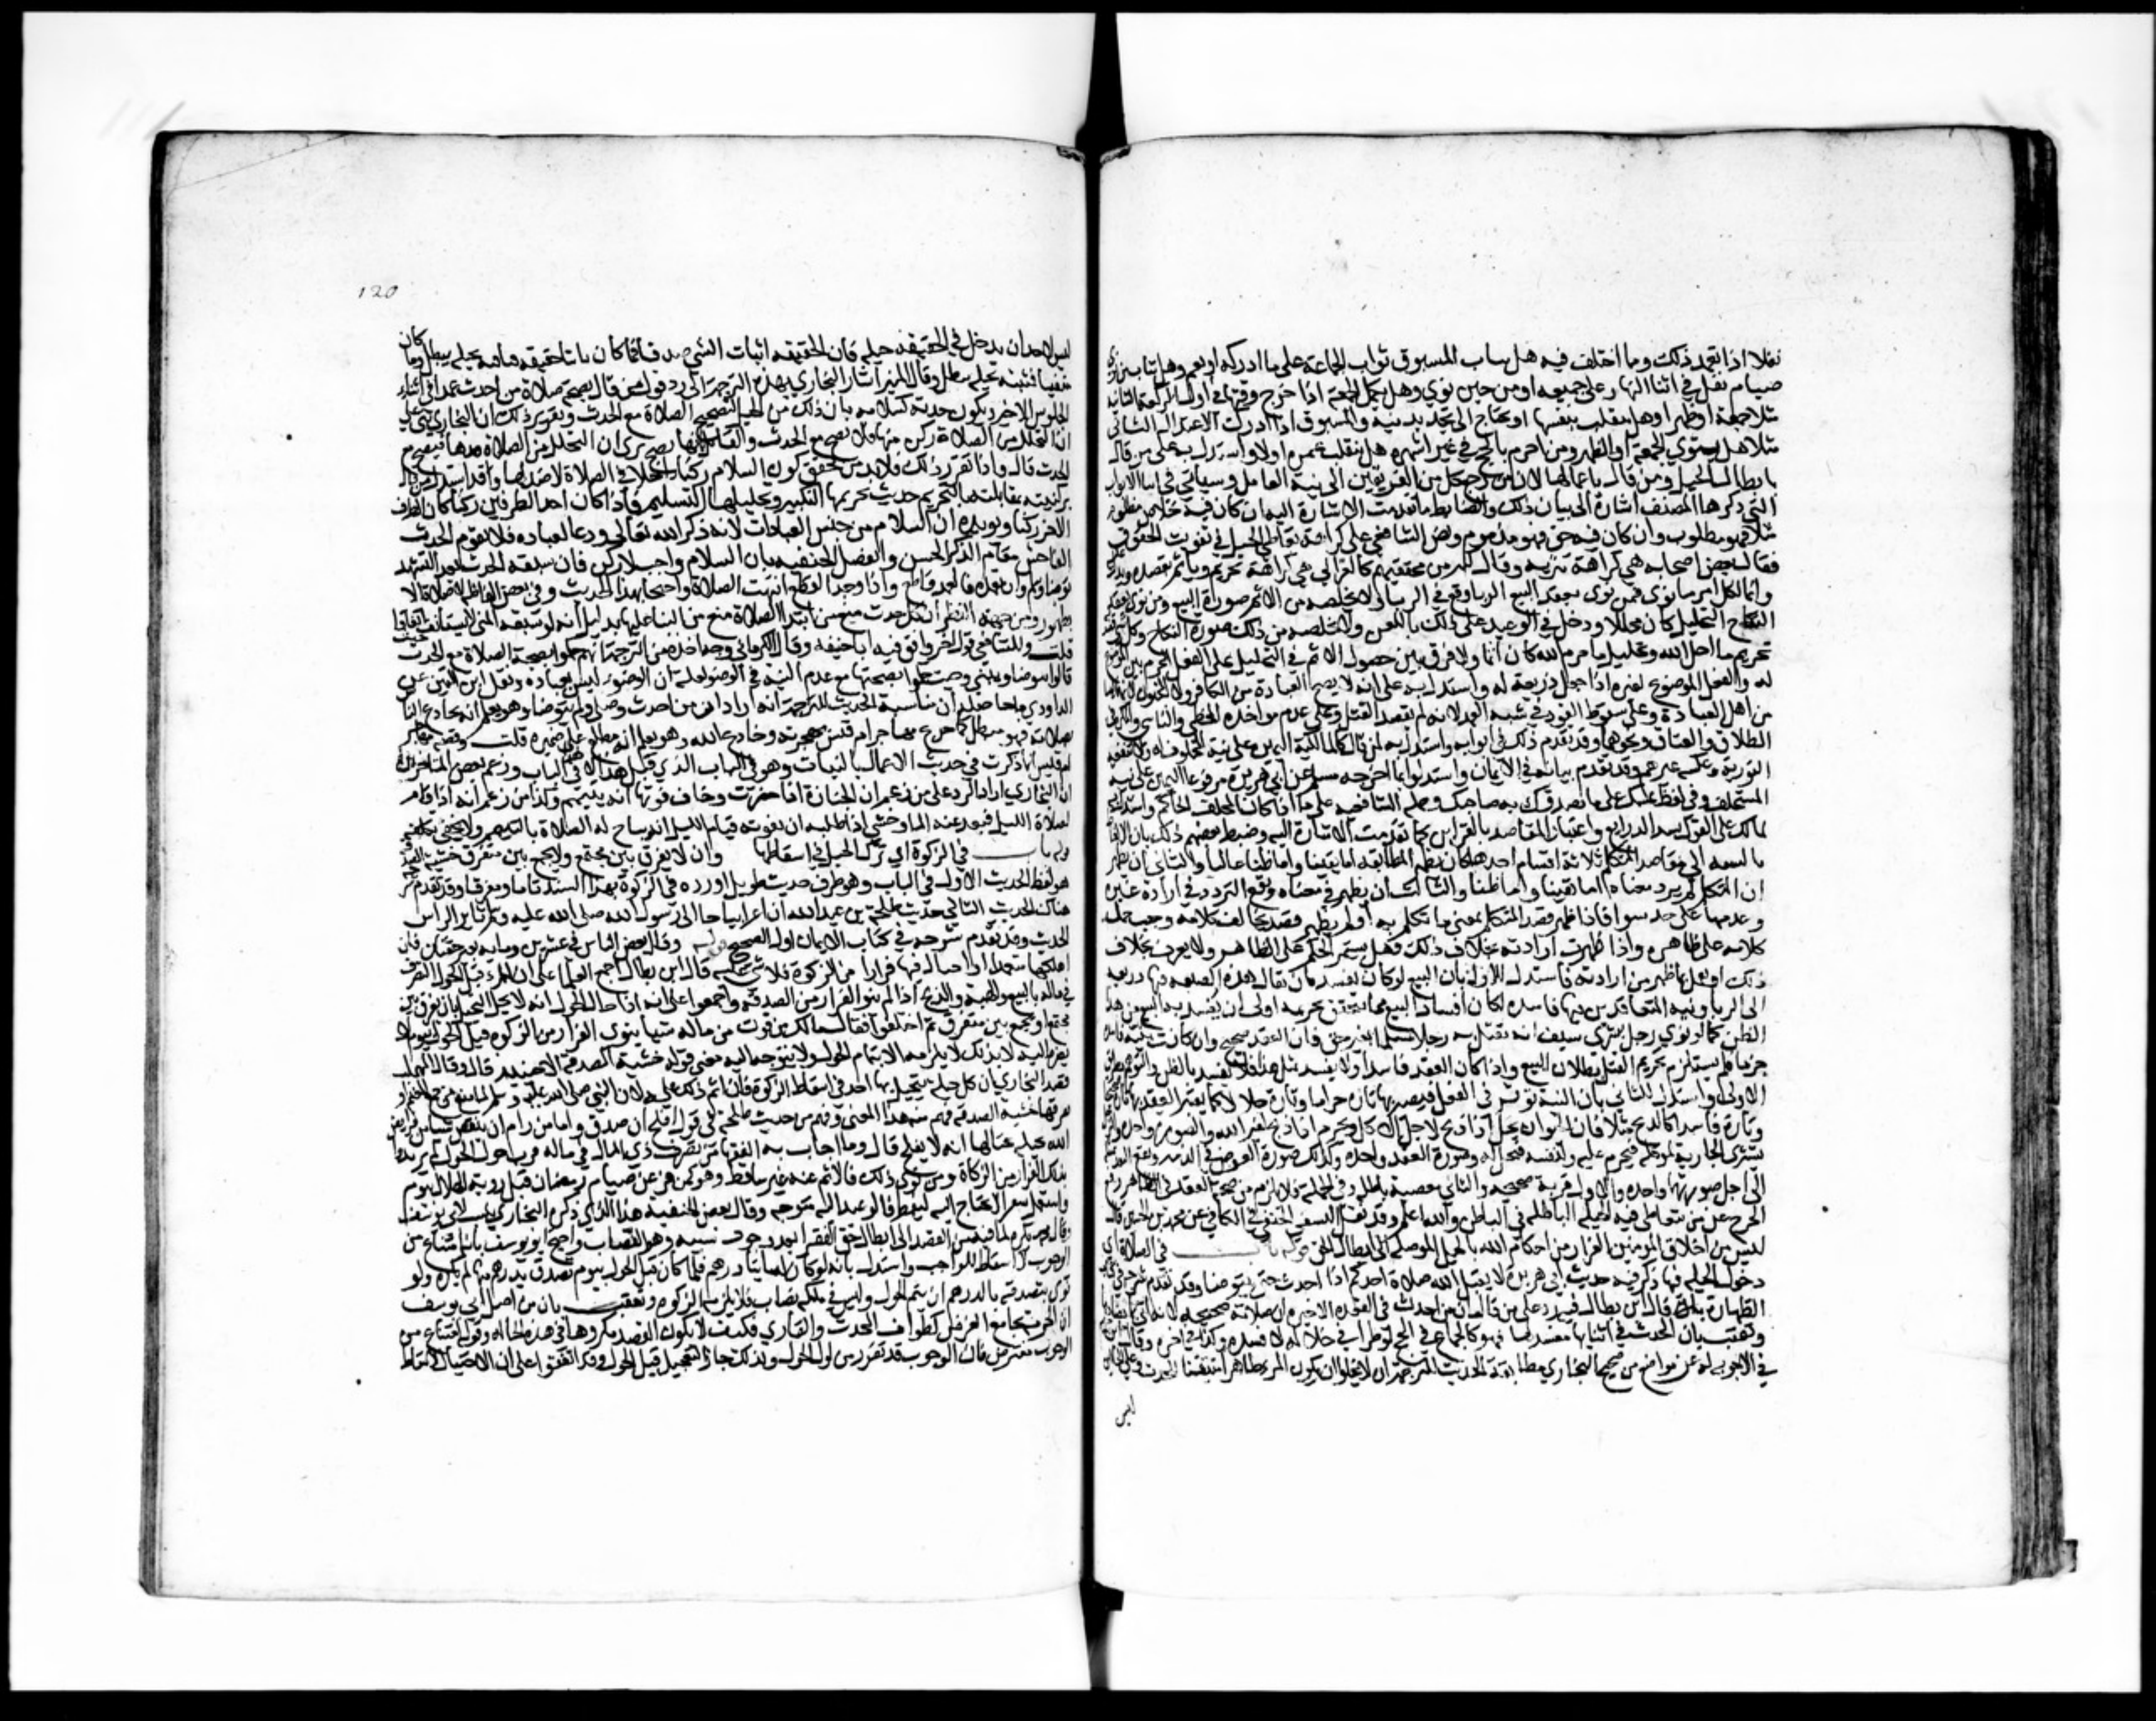 نفلا اذا تعمد ذلك وما اختلف فيه هل يثاب المسبوق ثواب الجماعة على ما ادركه او يعم وهل يثاب من نوى
صيام نفل في اثنا النهار على جميعه او من حين نوى وهل يكمل الجمعة اذا خرج وقتها في اول الركعة الثانية
مثلا جمعة او ظهرا وهل تنقلب بنفسها او تحتاج الى تجديد نية والمسبوق اذا ادرك الاعتدال الثاني
مثلا هل ينوي الجمعة او الظهر ومن احرم بالحج في غير اشهره هل ينقلب عمرة اولا واستدل به على من قال
بابطال الحيل ومن قال باعمالها لان مرجع كل من الفريقين الى نية العامل وسياتي في اثنا الابواب
التي ذكرها المصنف اشارة الى بيان ذلك والضابط ما تقدمت الاشارة اليه ان كان فيه خلاص مظلوم
مثلا فهو مطلوب وان كان فيه فوات حق فهو مذموم ونص الشافعي على كراهة تعاطي الحيل في تفويت الحقوق
فقال بعض اصحابه هي كراهة تنزيه وقال كثير من محققيهم كالغزالي هي كراهة تحريم وياثم بقصده ويدل
وانما لكل امرء ما نوى فمن نوى بعقد البيع الربا وقع في الربا ولا يخلصه من الاثم صورة البيع ومن نوى بعقد
النكاح التحليل كان محللا ودخل في الوعيد على ذلك باللعن ولا يخلصه من ذلك صورة النكاح وكل شي قصد به
تحريم ما احل الله وتحليل ما حرم الله كان اثما ولا فرق بين حصول الاثم في التحليل على الفعل المحرم بين الفعل الموضوع
له والفعل الموضوع لغيره اذا جعل ذريعة له واستدل به على انه لا تصح العبادة من الكافر ولا المجنون لانهما ليسا
من اهل العبادة وعلى سقوط القود في شبه العمد لانه لم يقصد القتل وعلى عدم مواخذة المخطي والناسي والمكره في
الطلاق والعتاق ونحوهما وقد تقدم ذلك في ابوابه واستدل به لمن قال كالمالكية اليمين على نية المحلوف له ولا تنفعه
التورية وعكسه غيرهم وقد تقدم بيانه في الايمان واستدلوا بما اخرجه مسلم عن ابي هريرة مرفوعا اليمين على نية
المستحلف وفي لفظ يمينك على ما يصدقك به صاحبك وحمله الشافعية على ما اذا كان المحلف الحاكم واستدل به
لمالك على القول بسد الذرايع واعتبار المقاصد بالقراين كما تقدمت الاشارة اليه وضبط بعضهم ذلك بان الالفاظ
بالنسبة الى مقاصد المتكلم ثلاثة اقسام احدها ان يظهر المطابقة اما يقينا واما ظنا غالبا والثاني ان يظهر
ان المتكلم لم يرد معناه اما يقينا واما ظنا والثالث ان يظهر في معناه ويقع التردد في ارادة غيره
وعدمها على حد سوا فاذا ظهر قصد المتكلم لمعنى ما تكلم به او لم يظهر قصد يخالف كلامه وجب حمل
كلامه على ظاهره واذا ظهرت ارادته بخلاف ذلك فهل يستمر الحكم على الظاهر ولا عبرة بخلاف
ذلك او يعمل بما ظهر من ارادته فاستدل للاول بان البيع لو كان يفسد بان يقال هذه الصيغه فيها ذريعه
الى الربا ونية المتعاقدين فيها فاسده لكان افساد البيع بما يتحقق تحريمه اولى ان يفسد به البيع من هذا
الظن كما لو نوى رجل بشرى سيف انه يقتل به رجلا مسلما بغير حق فان العقد صحيح وان كانت نيته فاسدة
جزما فلم يستلزم تحريم القتل بطلان البيع واذا كان العقد فاسدا ولا يفسد بمثل هذا فلا يفسد بالظن والتوهم بطريق
الاولى واستدل للثاني بان النية توثر في الفعل فيصير بها تارة حراما وتارة حلالا كما يصير العقد بها تارة صحيحا
وتارة فاسدا كالذبح مثلا فان الحيوان يحل اذا ذبح لاجل الاكل ويحرم اذا ذبح لغير الله والصورة واحدة والرجل
يشتري الجارية لموكله فتحرم عليه ولنفسه فتحل له وصورة العقد واحدة وكذلك صورة القرض في الذمة وبيع النقد بمثله
الى اجل صورتهما واحدة والاول قربة صحيحة والثاني معصية باطلة وفي الجملة فلا يلزم من صحة العقد في الظاهر رفع
الحرج عن من يتعاطى فيه الحيلة الباطلة في الباطن والله اعلم وقد نقل النسفي الحنفي في الكافي عن محمد بن الحسن قال
ليس من اخلاق المومنين الفرار من احكام الله بالحيل الموصلة الى ابطال الحق قوله باب في الصلاة اي
دخول الحيلة فيها ذكر فيه حديث ابي هريرة لا يقبل الله صلاة احدكم اذا احدث حتى يتوضا وقد تقدم شرحه في
الطهارة قال ابن بطال فيه رد على من قال ان من احدث في القعدة الاخيرة ان صلاته صحيحة لانه اتى بما يضادها
وتعقب بان الحدث في اثنائها مفسد لها فهو كالجماع في الحج لو طرا في خلاله لافسده وكذا في اخره وقال ابن حزم
في الاجوبة له عن مواضع من صحيح البخاري مطابقة الحديث للترجمة انه لا يخلوا ان يكون المرء طاهرا متيقنا للحدث وعلى الحالين
ليس
120
ليس لاحد ان يدخل في الحقيقة حيلة فان الحقيقة اثبات الشي صدقا فما كان ثابتا حقيقة فنافيه بحيلة مبطل وما كان
منفيا فمثبته بحيلة مبطل وقال ابن المنير اشار البخاري بهذه الترجمة الى رد قول من قال بصحة صلاة من احدث عمدا في اثناء
الجلوس الاخير ويكون حدثه كسلامه بان ذلك من الحيل لتصحيح الصلاة مع الحدث وتقرير ذلك ان البخاري بنى على
ان التحلل من الصلاة ركن منها فلا تصح مع الحدث والقائل بانها تصح يرى ان التحلل من الصلاة ضدها فتصح مع
الحدث قال واذا تقرر ذلك فلا بد من تحقق كون السلام ركنا داخلا في الصلاة لا ضدا لها وقد استدل من قال
بركنيته بمقابلته بالتحريم لحديث تحريمها التكبير وتحليلها التسليم فاذا كان احد الطرفين ركنا كان الطرف
الاخر ركنا ويويده ان السلام من جنس العبادات لانه ذكر الله تعالى ودعا لعباده فلا يقوم الحدث
الفاحش مقام الذكر الحسن وانفصل الحنفيه بان السلام واجب لا ركن فان سبقه الحدث بعد التشهد
توضا وسلم وان تعمده فالعمد قاطع واذا وجد القطع انتهت الصلاة واحتجا بهذا الحديث وفي بعض الفاظه لا صلاة الا
بطهور ومن جهة النظر ان كل حدث منع من ابتدا الصلاة منع من البنا عليها بدليل انه لو سبقه المني لاستانف اتفاقا
قلت وللشافعي قول اخر وافق فيه ابا حنيفه وقال الكرماني وجه اخذه من الترجمة انهم حكموا بصحة الصلاة مع الحدث حيث
قالوا يتوضا ويبني وحيث حكموا بصحتها مع عدم النية في الوضوء لعلة ان الوضوء ليس بعبادة ونقل ابن التين عن
الداودي ما حاصله ان مناسبة الحديث للترجمة انه اراد ان من احدث وصلى ولم يتوضا وهو يعلم انه يخادع الناس
بصلاته فهو مبطل كما خدع مهاجر ام قيس بهجرته وخادع الله وهو يعلم انه مطلع على ضميره قلت وقصة مهاجر
ام قيس انما ذكرت في حديث الاعمال بالنيات وهو في الباب الذي قبل هذا لا في الباب وزعم بعض المتاخرين
ان البخاري اراد الرد على من زعم ان الجنازة اذا حضرت وخاف فوتها انه يتيمم وكذا من زعم انه اذا قام
لصلاة الليل فبعد عنه الما وخشي اذا طلبه ان يفوته قيام الليل انه تباح له الصلاة بالتيمم ولا يخفى تكلفه
قوله باب في الزكوة اي ترك الحيل في اسقاطها وان لا يفرق بين مجتمع ولا يجمع بين متفرق خشية الصدقة
هو لفظ الحديث الاول في الباب وهو طرف من حديث طويل اورده في الزكوة بهذا السند تاما ومفرقا وقد تقدم شرحه
هناك الحديث الثاني حديث طلحة بن عبيد الله ان اعرابيا جا الى رسول الله صلى الله عليه وسلم ثاير الراس
الحديث وقد تقدم شرحه في كتاب الايمان اول الصحيح قوله وقال بعض الناس في عشرين ومايه بعير حقتان فان
اهلكها متعمدا او احتال فيها فرارا من الزكوة فلا شي عليه قال ابن بطال اجمع العلما على ان للمرء قبل الحول التصرف
في ماله بالبيع والهبة والذبح اذا لم ينو الفرار من الصدقة واجمعوا على انه اذا حال الحول انه لا يحل التحيل بان يفرق بين
مجتمع او يجمع بين متفرق ثم اختلفوا فقال مالك من فوت من ماله شيا ينوي الفرار من الزكوة قبل الحول بشهر او نحوه
لزمته الزكاة لا يلزمه الا بتمام الحول ولا يتوجه اليه معنى قوله خشية الصدقة الا حينئذ قال وقال المهلب
قصد البخاري ان كل حيلة يتحيل بها احد في اسقاط الزكوة فان اثم ذلك عليه لان النبي صلى الله عليه وسلم لما منع من جمع الغنم او
تفرقتها خشية الصدقة فهم منه هذا المعنى وفهم من حديث طلحة في قوله افلح ان صدق وان من رام ان ينقص شيا من فرايض
الله بحيلة يحتالها انه لا يفلح قال وما اجاب به الفقها من تصرف ذي المال في ماله قرب حلول الحول ثم يريد
بذلك الفرار من الزكاة ومن نوى ذلك فالاثم عنه غير ساقط وهو كمن فر عن صيام رمضان قبل روية الهلال بيوم
واستعمل سفرا لا يحتاج اليه ليفطر فالوعيد اليه متوجه وقال بعض الحنفية هذا الذي ذكره البخاري ينسب لابي يوسف
وقال محمد يكره لما فيه من القصد الى ابطال حق الفقرا بعد وجود سببه وهو النصاب واحتج ابو يوسف بانه امتناع من
الوجوب لا اسقاط للواجب واستدل بانه لو كان له مايتا درهم فلما كان قبل الحول بيوم تصدق بدرهم منها لم يكره ولو
نوى بتصدقه بالدرهم ان يتم الحول وليس في ملكه نصاب فلا يلزمه الزكوة وتعقب بان من اصل ابي يوسف
ان الحرمة تجامع الفرض كطواف المحدث والعاري فكيف لا يكون القصد مكروها في هذه الحالة وقوله امتناع من
الوجوب معترض فان الوجوب قد تقرر من اول الحول ولذلك جاز التعجيل قبل الحول وقد اتفقوا على ان الاحتيال لاسقاط